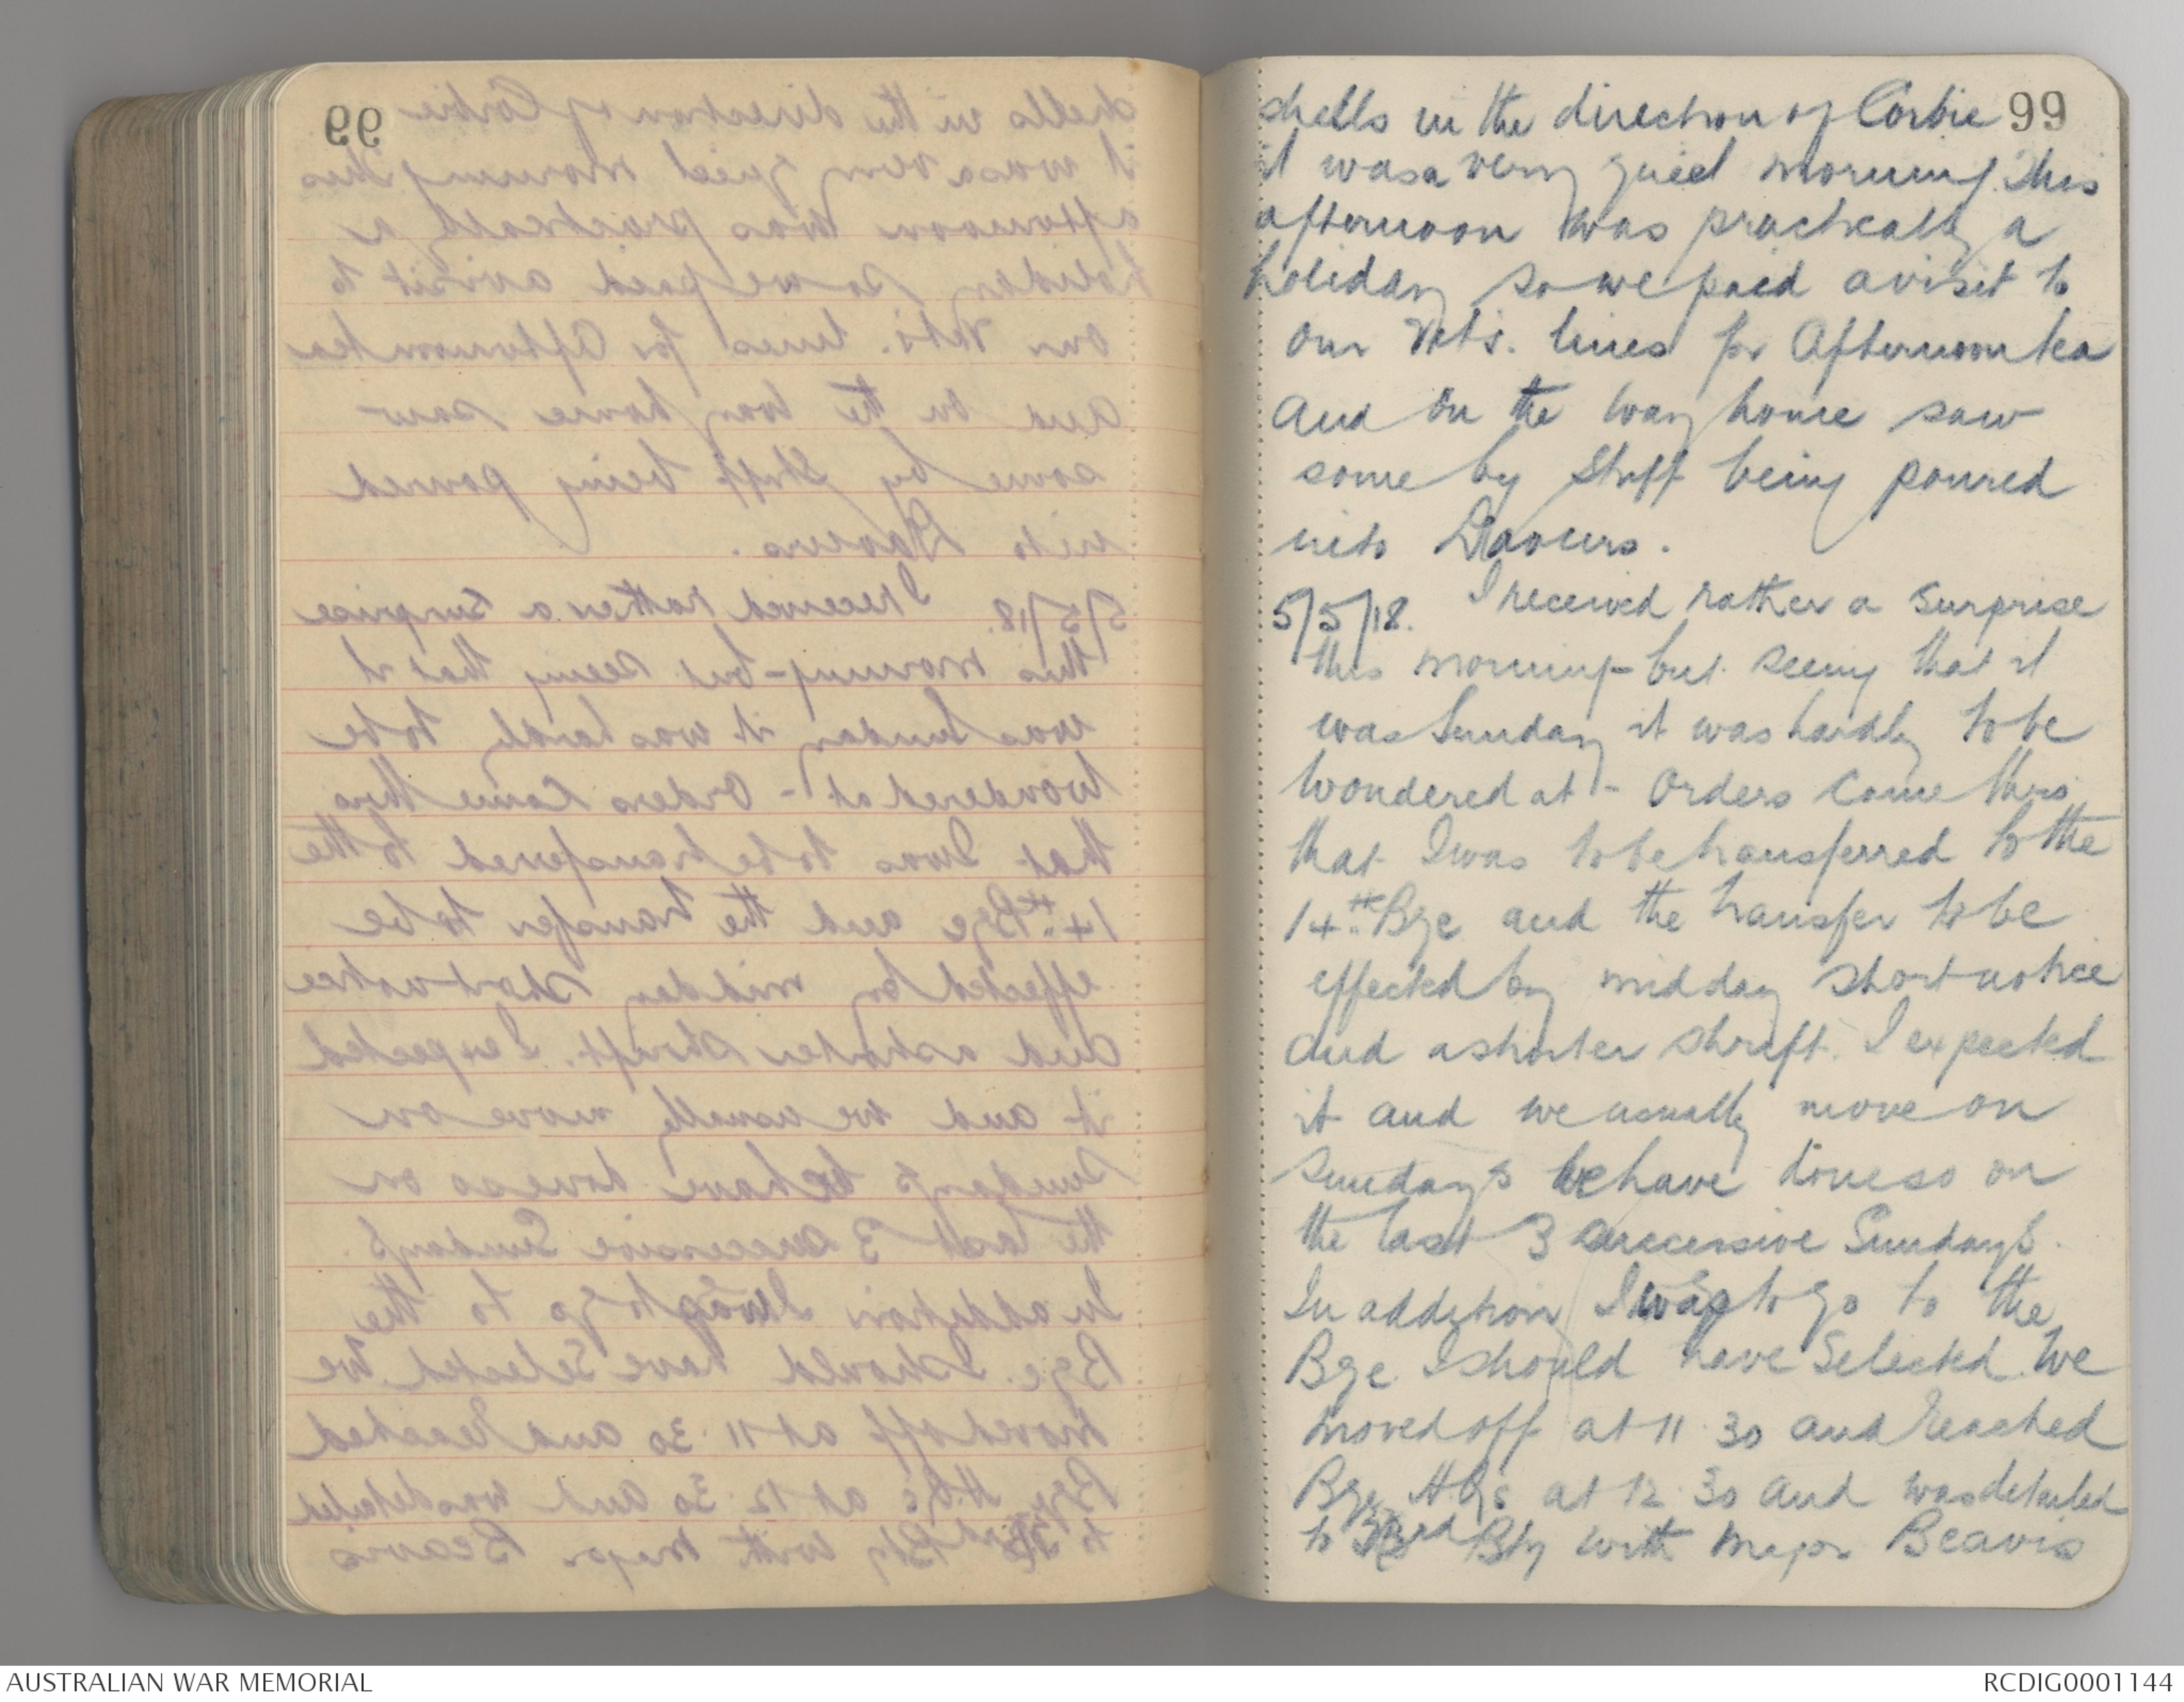 99
shells in the direction of Corbie
it was a very quiet morning. This
afternoon was practically a
holiday so we paid a visit to
our Vet's. lines for Afternoon tea
and on the way home saw
some big stuff being poured
into Daours.
5/5/18. I received rather a surprise
this morning - but seeing that it
was Sunday it was hardly to be
wondered at - Orders came thro
that I was to be transferred to the
14th Bge and the transfer to be
effected by midday short notice
and a shorter shrift. I expected
it and we usually move on
Sundays we have done so on
the last 3 successive Sundays.
In addition I was to go to the
Bge I should have selected. We
moved off at 11.30 and reached
Bge HQs at 12.30 and was detailed
to 53rd Bty with Major Beavis
AUSTRALIAN WAR MEMORIAL
RCDIG0001144